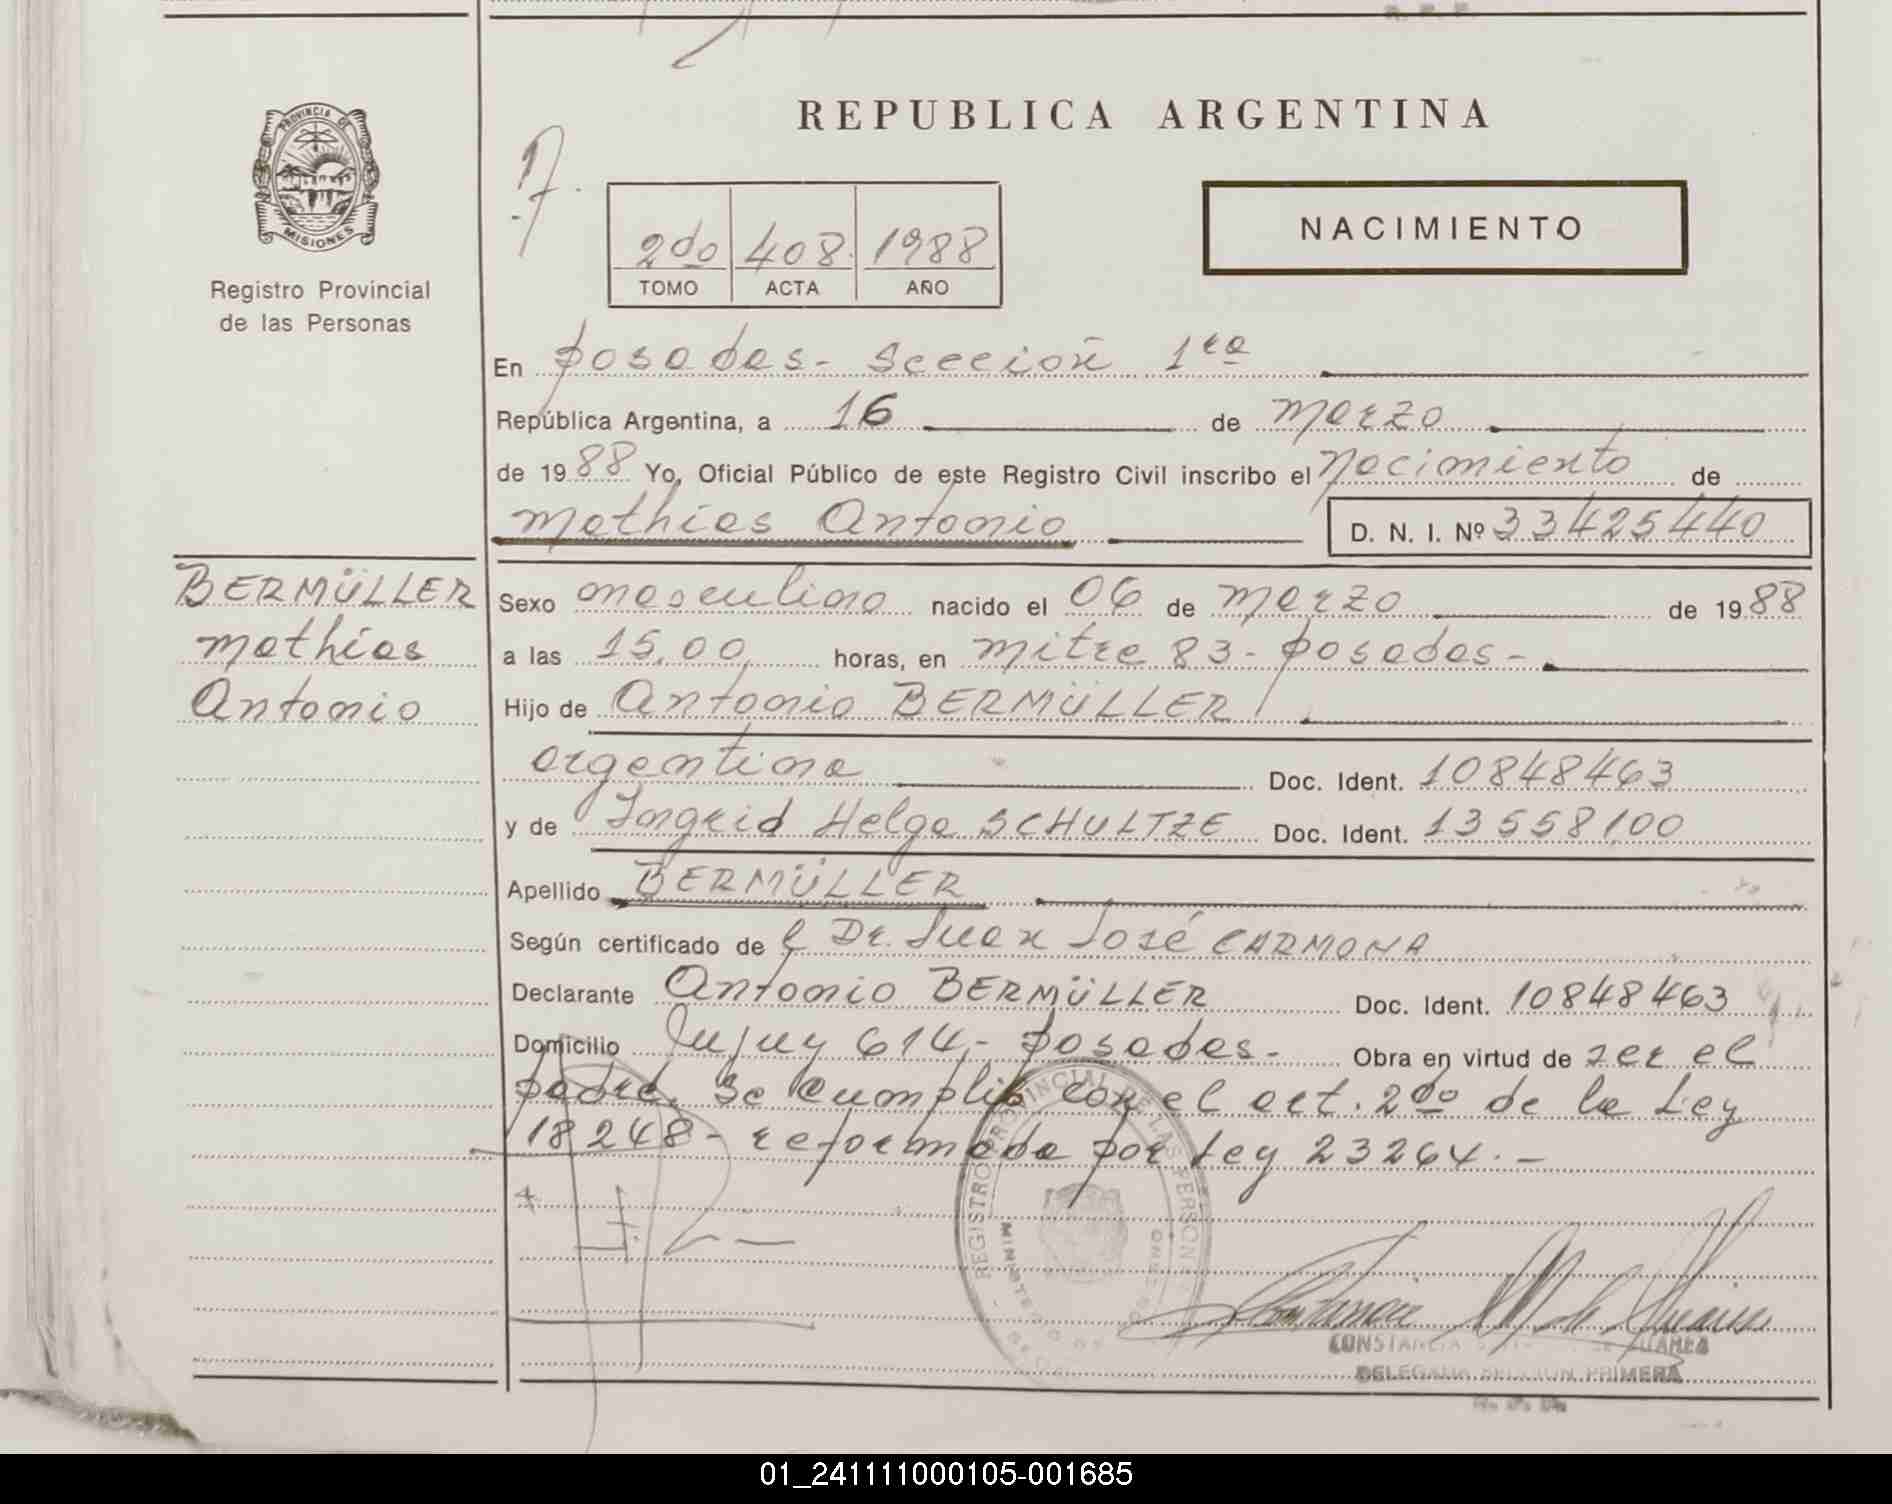 R. P. P.
PROVINCIA DE
MISIONES
Registro Provincial
de las Personas
REPUBLICA ARGENTINA
NACIMIENTO
2do 408 1988
TOMO ACTA AÑO
En Posadas - Sección 1ra
República Argentina, a 16 de Marzo
de 1988 Yo, Oficial Público de este Registro Civil inscribo el Nacimiento de
Mathías Antonio D. N. I. Nº 33425440
BERMÜLLER
Mathías
Antonio
Sexo masculino nacido el 06 de Marzo de 1988
a las 15,00 horas, en Mitre 83 - Posadas -
Hijo de Antonio BERMÜLLER
argentina Doc. Ident. 10848463
y de Ingrid Helga SCHULTZE Doc. Ident. 13558100
Apellido BERMÜLLER
Según certificado de l Dr. Juan José CARMONA
Declarante Antonio BERMÜLLER Doc. Ident. 10848463
Domicilio Jujuy 614,- Posadas - Obra en virtud de ser el
padre. Se cumplió con el art. 2do de la Ley
18248 - reformada por Ley 23264. -
REGISTRO PROVINCIAL DE LAS PERSONAS
MINISTERIO DE
CONSTANCIA DE SUAREZ
DELEGADA SECCION PRIMERA
R. P. P.
01_241111000105-001685